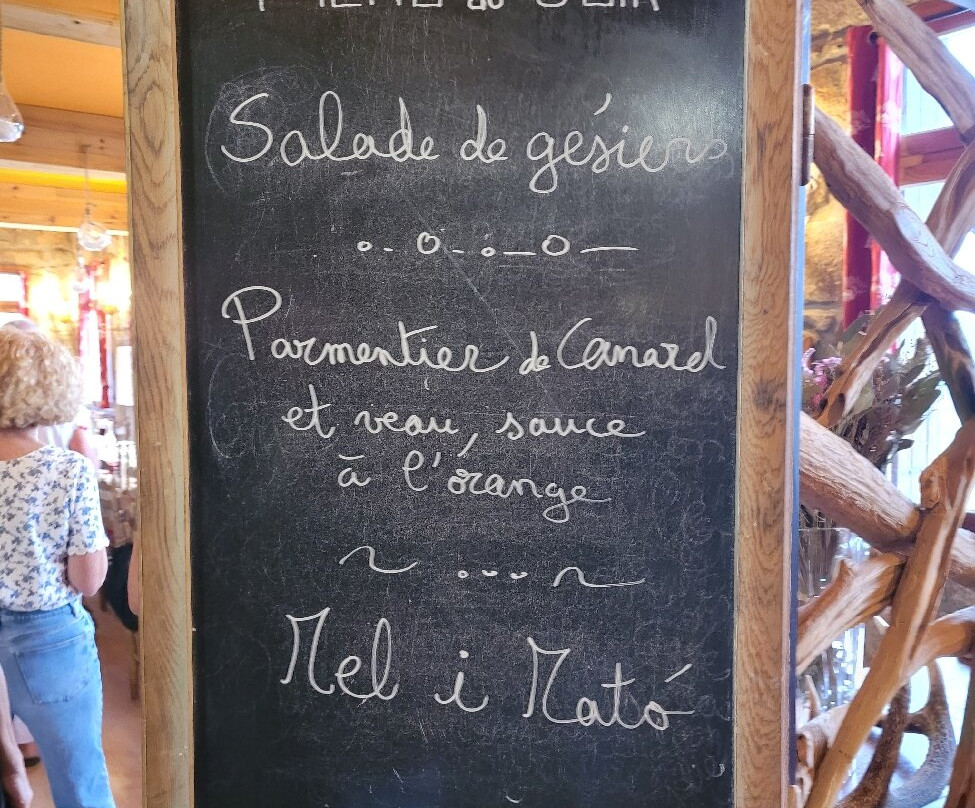 MENU du SOIR
Salade de gésiers
Parmentier de Canard
et veau, sauce
à l'orange
Mel i Mató